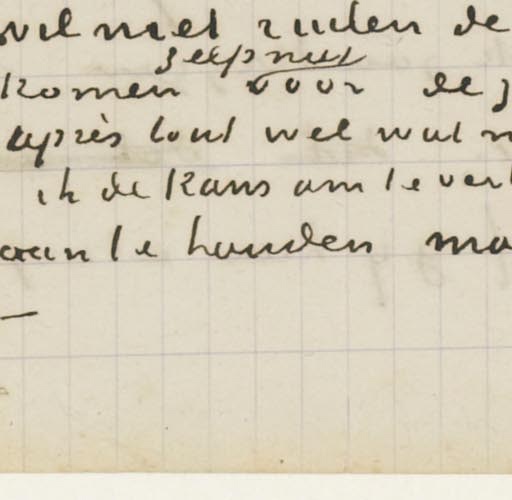 wil niet ruilen de
zeepnut
komen voor de z
après tout wel wat
ik de kans om te ver
aan te houden ma
—